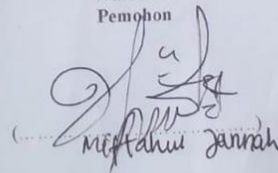 Pemohon
(..................
Miftahul Jannah